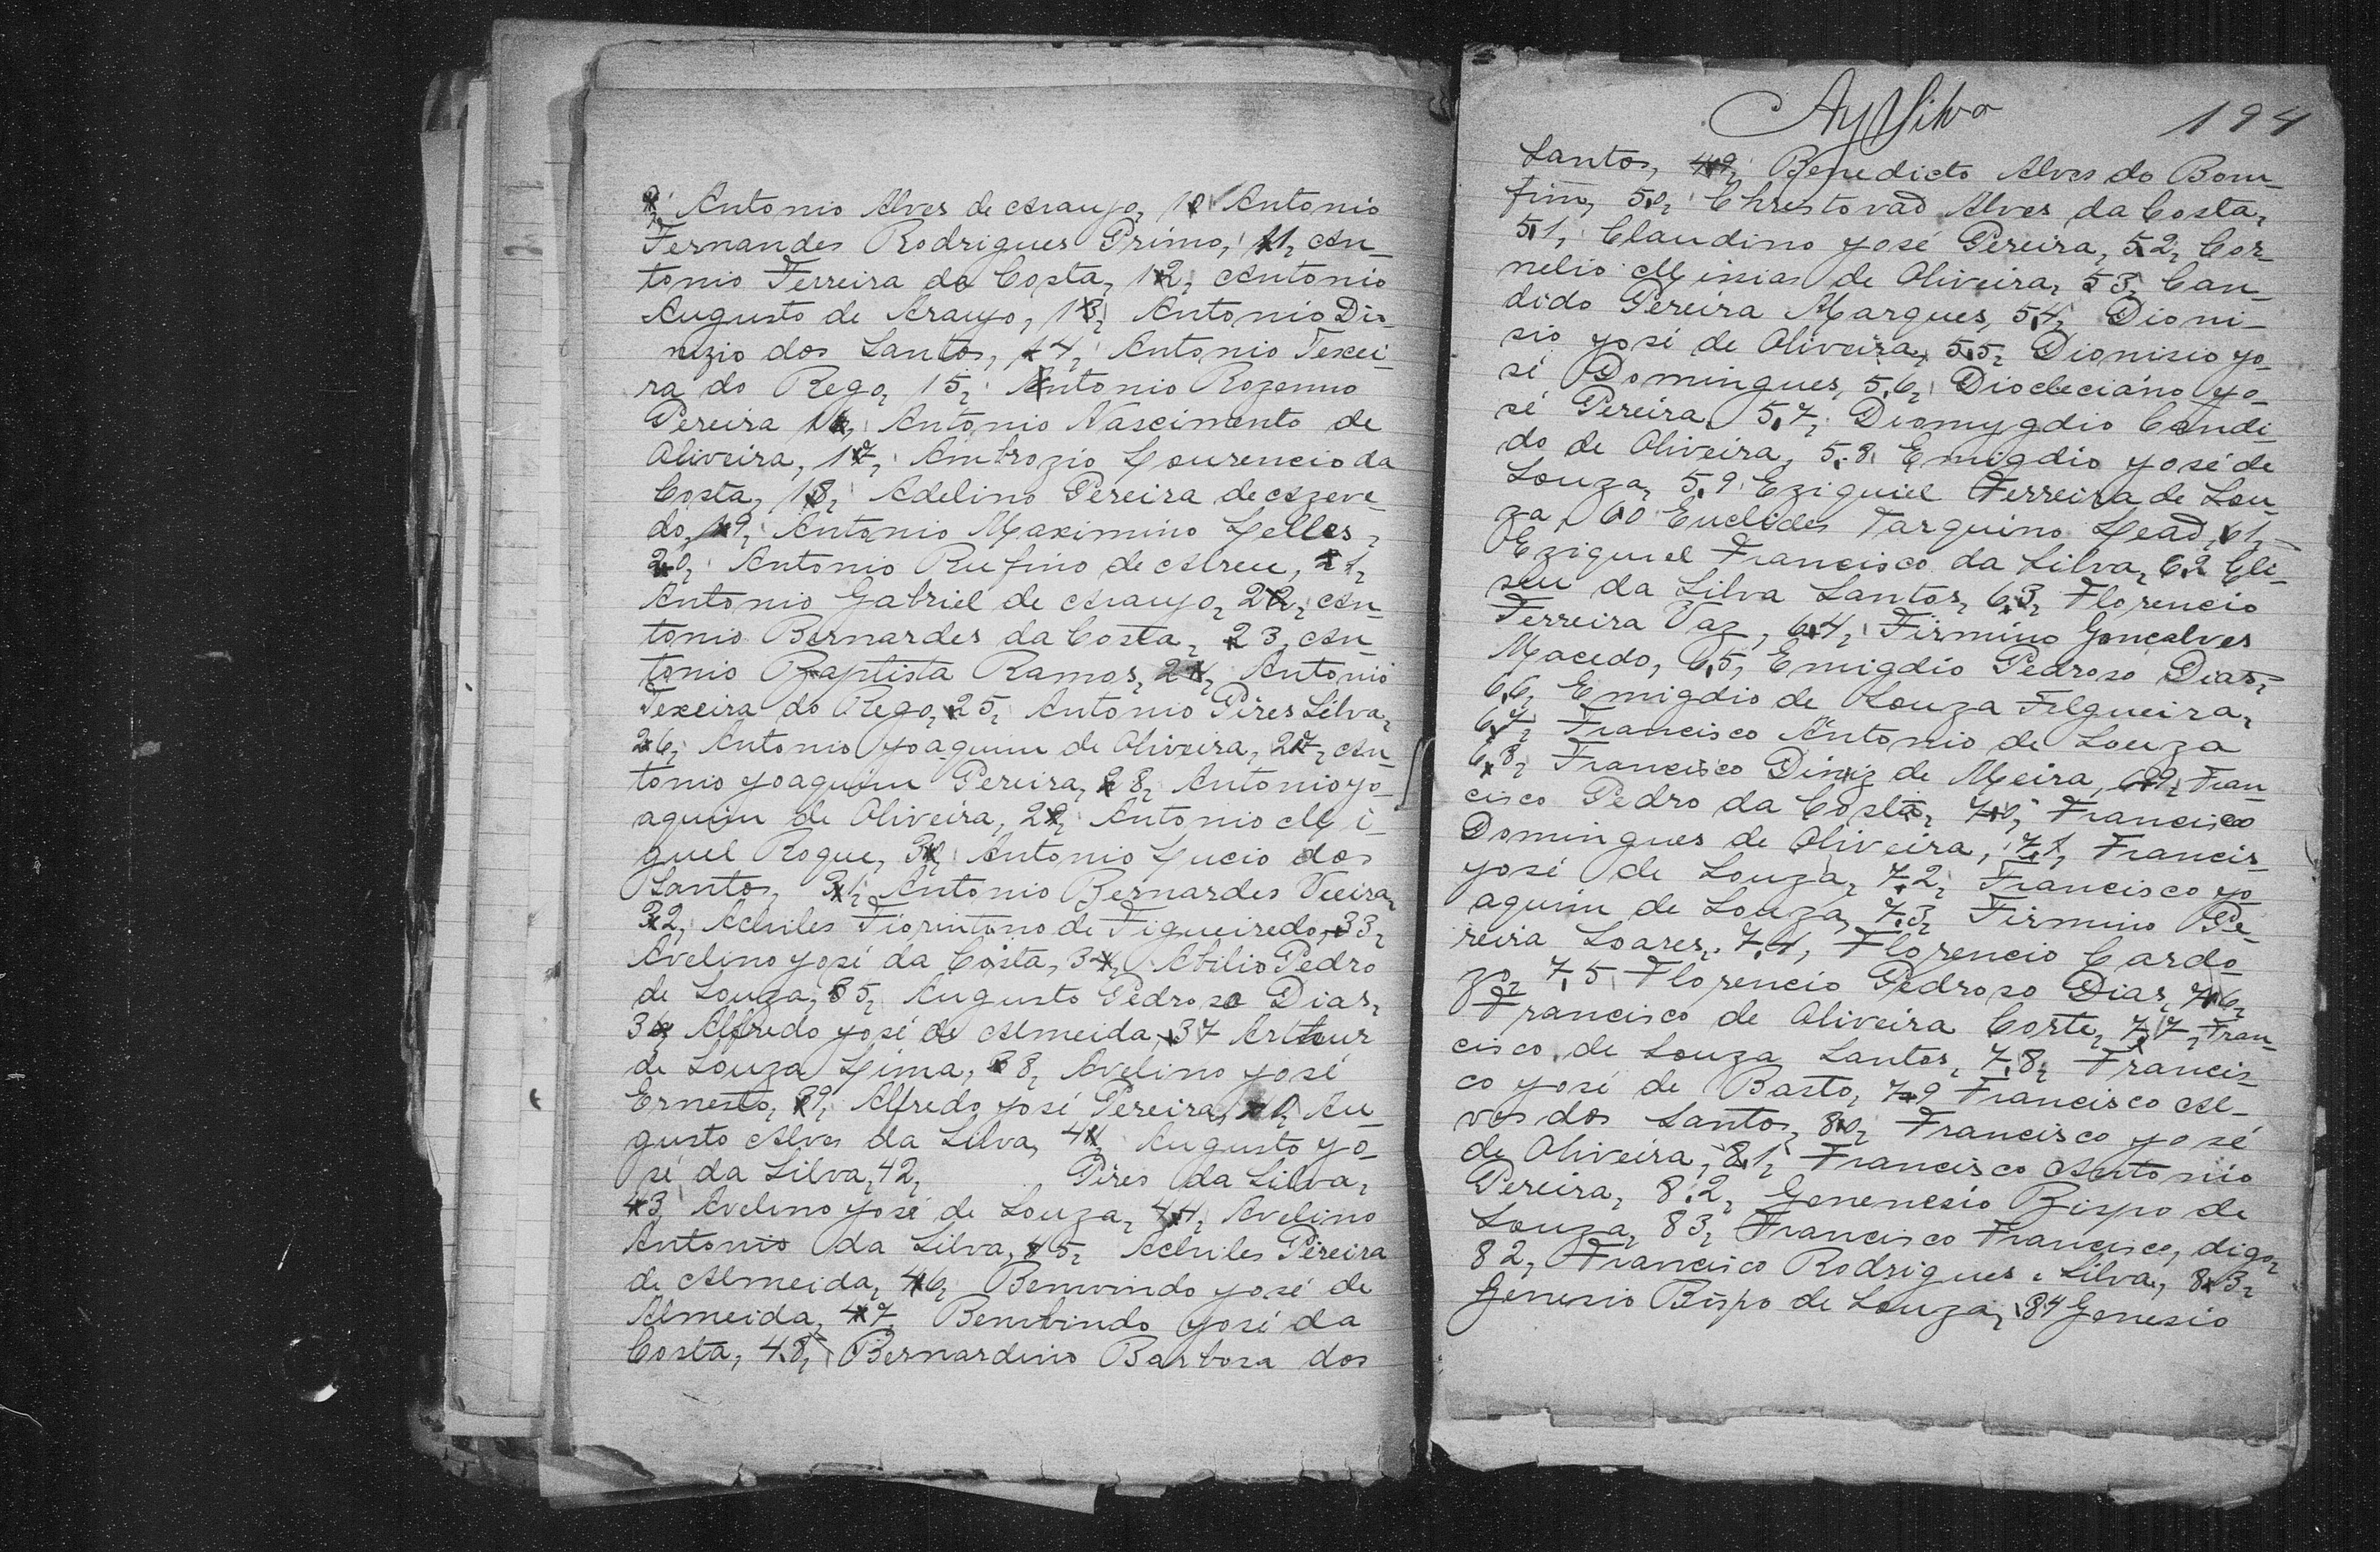 9, Antonio Alves de Araujo, 10, Antonio
Fernandes Rodrigues Primo, 11, An-
tonio Ferreira da Costa, 12, Antonio
Augusto de Araujo, 13, Antonio Dio-
nizio dos Santos, 14, Antonio Texei-
ra do Rego, 15, Antonio Rozenno
Pereira 16, Antonio Nascimento de
Oliveira, 17, Ambrozio Lourencio da
Costa, 18, Adelino Pereira de Azeve-
do, 19, Antonio Maximino Telles,
20, Antonio Rufino de Abreu, 21,
Antonio Gabriel de Araujo, 22, An-
tonio Bernardes da Costa, 23, An-
tonio Baptista Ramos, 24, Antonio
Texeira do Rego, 25, Antonio Pires Silva,
26, Antonio Joaquim de Oliveira, 27, An-
tonio Joaquim Pereira, 28, Antonio Jo-
aquim de Oliveira, 29, Antonio Mi-
guel Roque, 30, Antonio Lucio dos
Santos, 31, Antonio Bernardes Vieira,
32, Achiles de Figueiredo, 33,
Avelino José da Costa, 34, Abilio Pedro
de Souza, 35, Augusto Pedroso Dias,
36, Alfredo José de Almeida, 37 Arthur
de Souza Lima, 38, Avelino José
Ernesto, 39, Alfredo José Pereira, 40, Au-
gusto Alves da Silva, 41, Augusto Jo-
sé da Silva, 42, Pires da Silva,
43, Avelino José de Souza, 44, Avelino
Antonio da Silva, 45, Achiles Pereira
de Almeida, 46, Bemvindo José de
Almeida, 47, Bembindo José da
Costa, 48, Bernardino Barbosa dos
194
Santos, 49, Benedicto Alves do Bom-
fim, 50, Chrestovaõ Alves da Costa,
51, Claudino José Pereira, 52, Cor-
nelio Missias de Oliveira, 53, Can-
dido Pereira Marques, 54, Dioni-
sio José de Oliveira, 55, Dionisio Jo-
sé Domingues, 56, Diocleciano Jo-
sé Pereira, 57, Diomygdio Candi-
do de Oliveira, 58, Emigdio José de
Souza, 59 Eziquiel Ferreira de Sou-
za, 60 Euclides Tarquino Leaõ, 61,
Eziquiel Francisco da Silva, 62 Eli-
seu da Silva Santos, 63, Florencio
Ferreira Vaz, 64, Firmino Gonçalves
Macedo, 65, Emigdio Pedroso Dias,
66, Emigdio de Souza Filgueira,
67, Francisco Antonio de Souza
68, Francisco Diniz de Meira, 69, Fran-
cisco Pedro da Costa, 70, Francisco
Domingues de Oliveira, 71, Francis-
José de Souza, 72, Francisco Jo
aquim de Souza, 73, Firmino Pe-
reira Soares, 74, Florencio Cardo-
zo, 75, Florencio Pedroso Dias, 76,
Francisco de Oliveira Corte, 77, Fran-
cisco de Souza Santos, 78, Francis-
co José de Basto, 79 Francisco Al-
ves dos Santos, 80, Francisco José
de Oliveira, 81, Francisco Antonio
Pereira, 82, Genenesio Bispo de
Souza, 83, Francisco Francisco, digo,
82, Francisco Rodrigues e Silva, 83,
Genesio Bispo de Souza, 84 Genesio